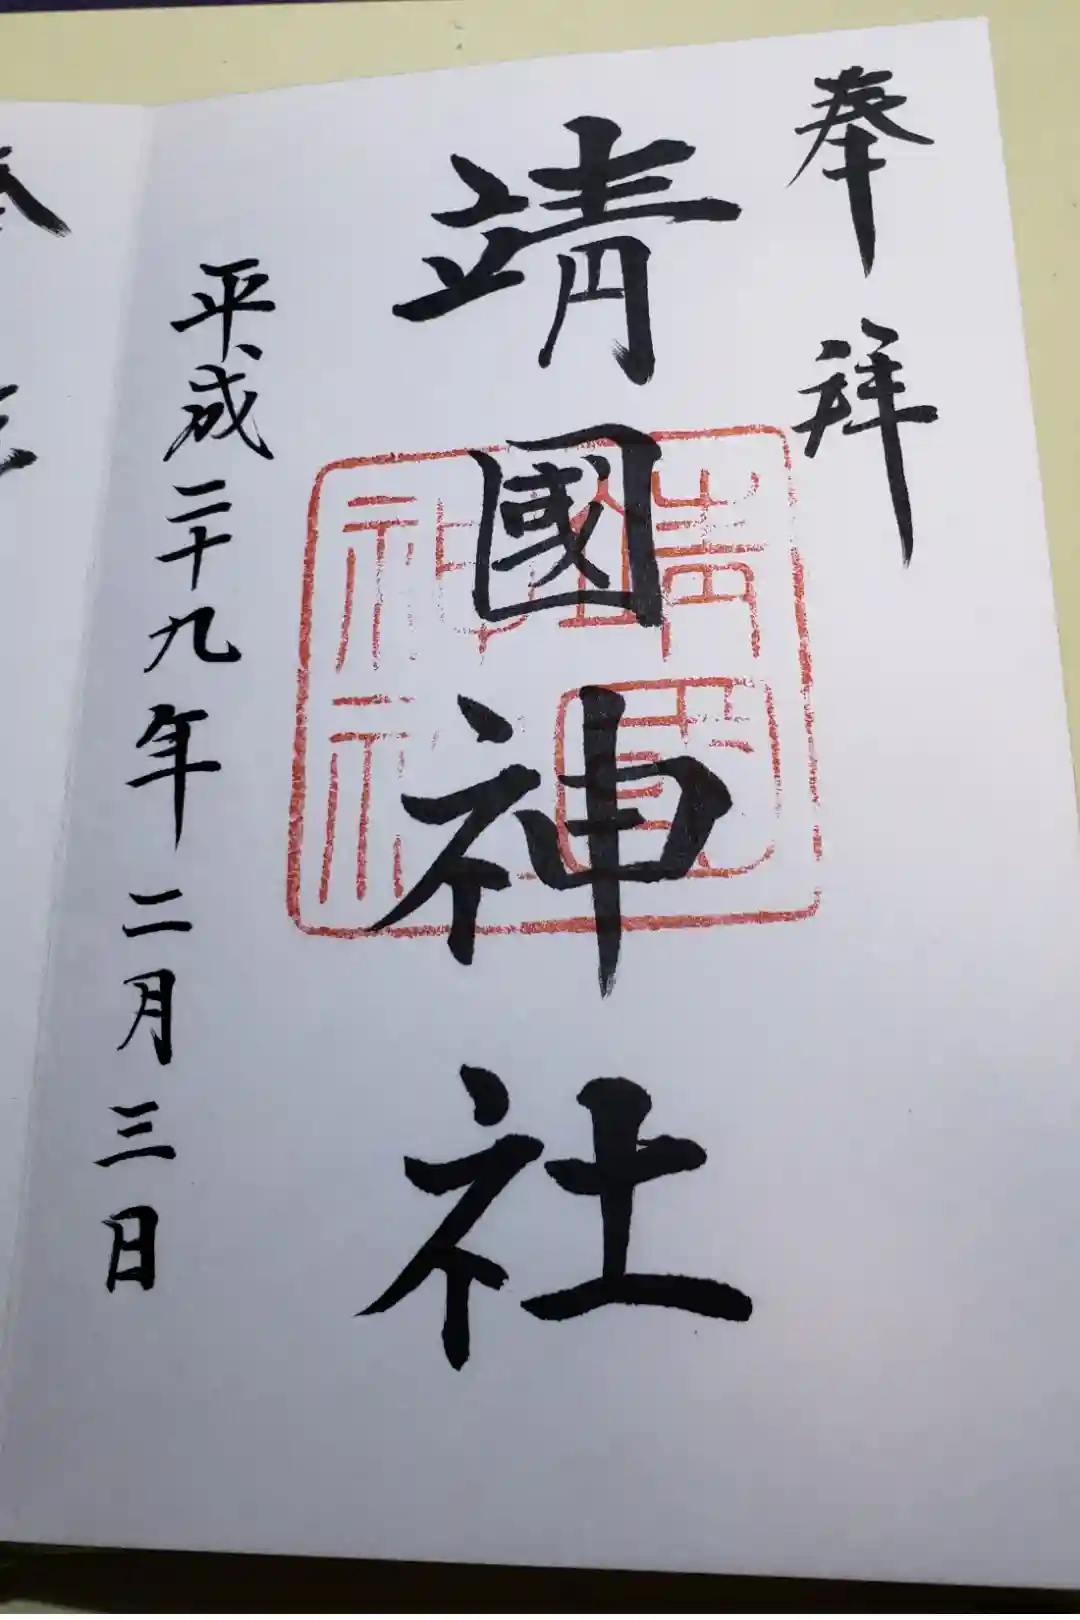 奉拝
靖國神社
靖國神社
平成二十九年二月三日